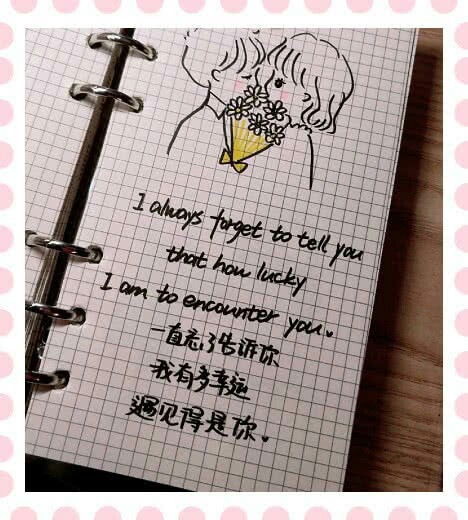 I always forget to tell you
that how lucky
I am to encounter you.
一直忘了告诉你
我有多幸运
遇见得是你。